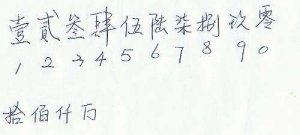 壹貳叁肆伍陸柒捌玖零
1 2 3 4 5 6 7 8 9 0
拾佰仟万